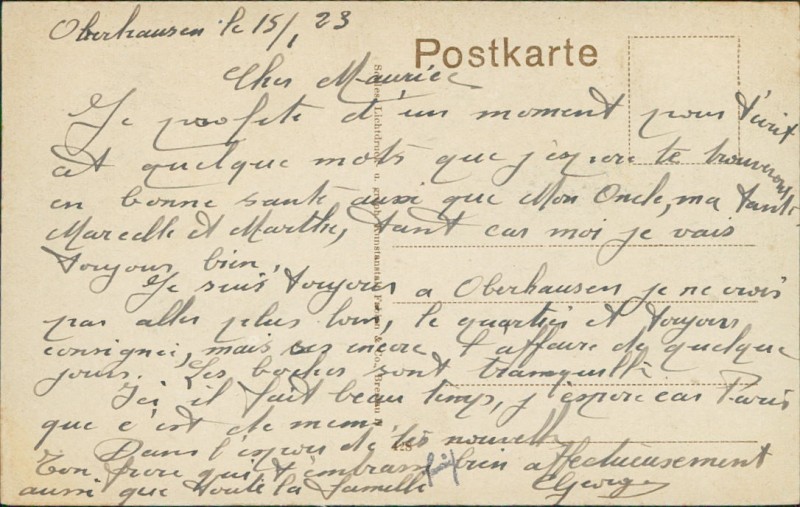 Oberhausen le 15/1 23
Postkarte
Cher Maurice
Je profite d'un moment pour t'écrir
ai quelque mots que j'espere te trouverons
en bonne santé aussi que Mon Oncle, ma tante
Marcelle et Marthe, tant cas moi je vais
toujours bien,
Je suis toujours a Oberhausen je ne crois
pas aller plus loin, le quartier et toujour
consigner, mais ces encore l'affaire de quelque
jours. Les boches sont tranquille
Ici il fait beau temps, j'espere cas Paris
que c'est de meme
Dans l'espoir de tes nouvelle
Ton frere qui t'embrasse bien affectueusement
aussi que toute la famille Georges